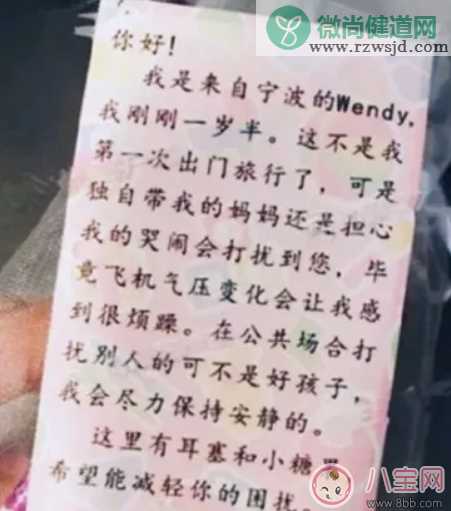 微尚健道网
www.rzwsjd.com
你好！
我是来自宁波的Wendy,
我刚刚一岁半。这不是我
第一次出门旅行了，可是
独自带我的妈妈还是担心
我的哭闹会打扰到您，毕
竟飞机气压变化会让我感
到很烦躁。在公共场合打
扰别人的可不是好孩子，
我会尽力保持安静的。
这里有耳塞和小糖果
希望能减轻你的困扰。
八宝网
www.8bb.com